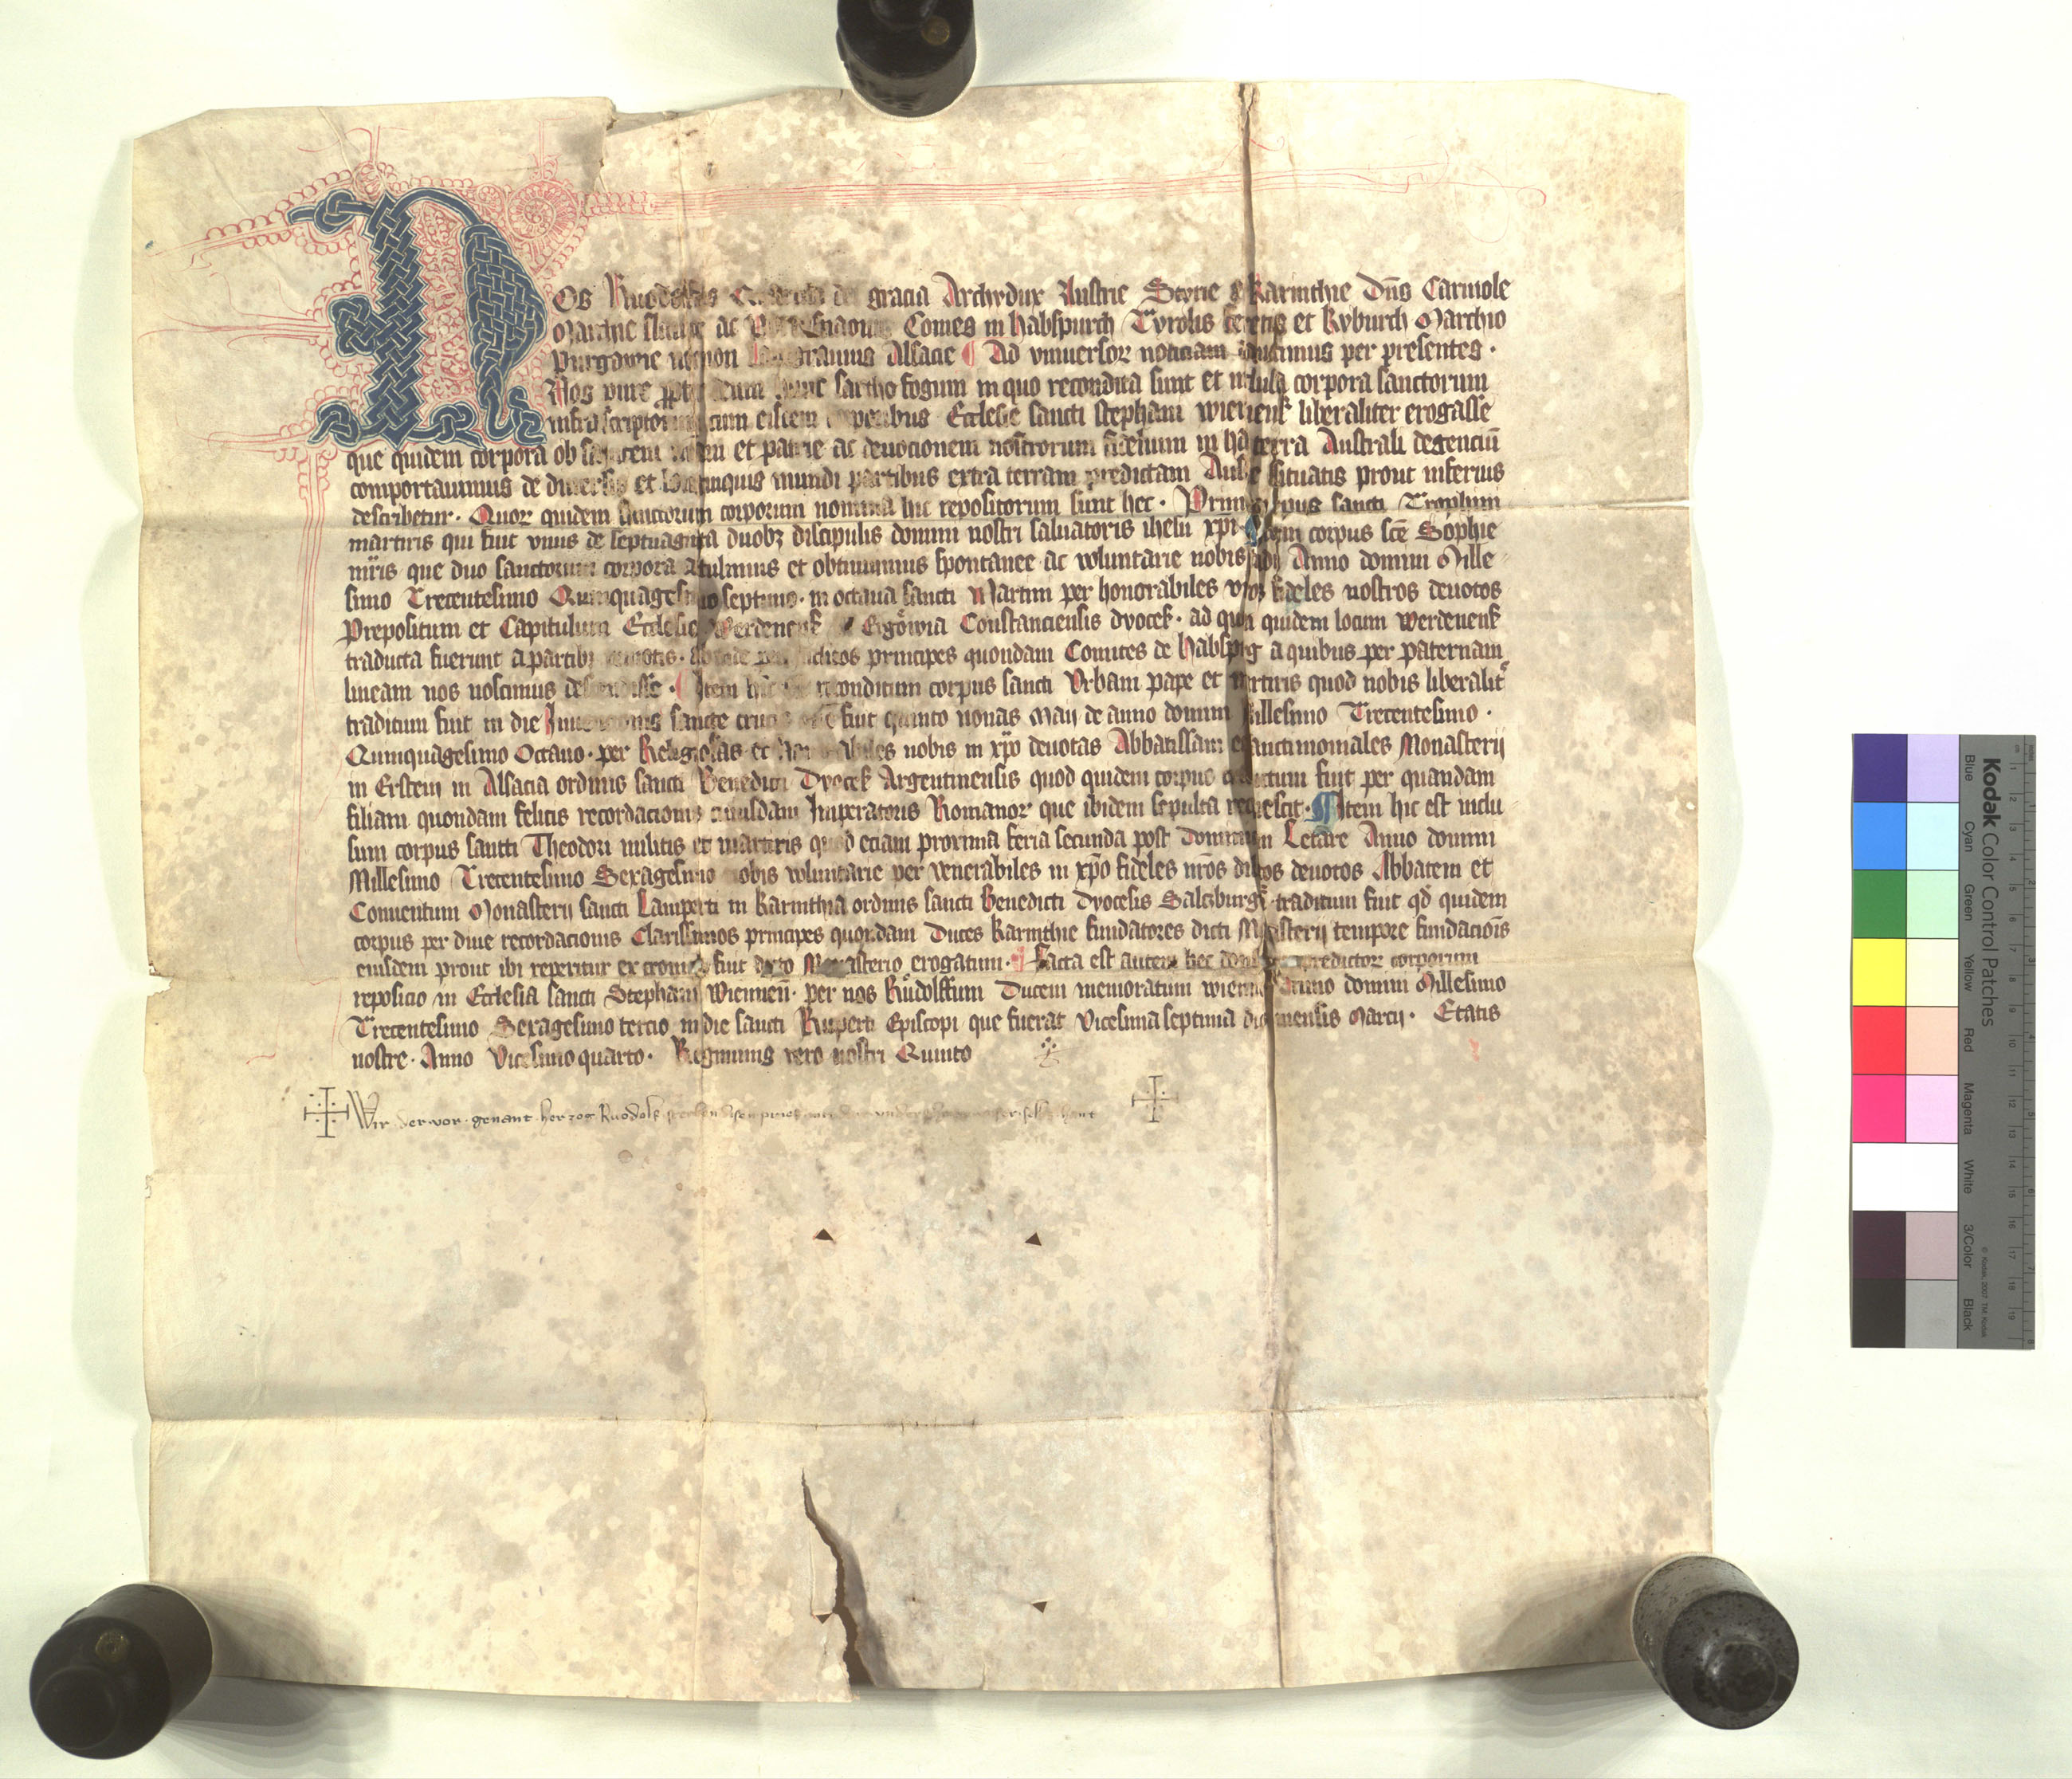 Nos Ruodolfus dei gracia Archydux Austrie Styrie & Karinthie Dn̄s Carniole
Marchie ac Comes in Habspurch Tyrolis et Kyburch Marchio
Purgowie Alsacie ¶ Ad vniuersoꝝ noticiam per presentes ·
Nos sarthofogum in quo recondita sunt et corpora sanctorum
infrascriptorum cum eisdem Ecclesie sancti stephani wiennenẜ liberaliter erogasse
que quidem corpora ob et patrie ac deuocionem nostrorum fidelium in hac terra Australi degenciū
comportauimus de diuersis et mundi partibus extra terram predictam situatis prout inferius
describetur · Quoꝝ quidem sanctorum corporum nomina hic repositorum sunt hec · sancti Trophim
martiris qui fuit vnus de septuaginta duobꝫ discipulis domini nostri saluatoris ihesu xp̄i · corpus scē Sophie
mr̄is que duo sanctorum corpora et obtinuimus spontanee ac voluntarie nobis Anno domini Mille-
simo Trecentesimo Quinquagesimo septimo · in octaua sancti Martini per honorabiles viros fideles nostros deuotos
Prepositum et Capitulum Ecclesie Werdenenẜ Ergöwia Constanciensis dyoceẜ · ad quem quidem locum werdenenẜ
traducta fuerunt a partibꝫ remotis · principes quondam Comites de Habspurg a quibus per paternam
lineam nos noscimus descendisse · ¶ Item reconditum corpus sancti Vrbani pape et martiris quod nobis liberalit̄
traditum fuit in die sancte crucis fuit quinto nonas Maij de anno domini Millesimo Trecentesimo ·
Quinquagesimo Octauo · per Religiosas et nobis in xp̄o deuotas Abbatissam sanctimoniales Monasterij
in Erstein in Alsacia ordinis sancti Benedicti Dyoceẜ Argentinensis quod quidem corpus fuit per quandam
filiam quondam felicis recordacionis cuiusdam Imperatoris Romanoꝝ que ibidem sepulta requiescit · ¶ Item hic est inclu-
sum corpus sancti Theodori militis et martiris quod eciam proxima feria secunda post Letare Anno domini
Millesimo Trecentesimo Sexagesimo nobis voluntarie per venerabiles in xp̄o fideles nr̄os deuotos Abbatem et
Conuentum Monasterij sancti Lamperti in Karinthia ordinis sancti Benedicti Dyocesis Salczburgẜ traditum fuit qd̄ quidem
corpus per diue recordacionis Clarissimos principes quondam Duces Karinthie fundatores dicti Monasterij tempore fundaciōis
eiusdem prout ibi reperitur ex fuit dicto Monasterio erogatum · ¶ Facta est autem hec predictoꝝ corporum
reposicio in Ecclesia sancti Stephani Wiennen̄ · per nos Rudolffum Ducem memoratum wienne Anno domini Millesimo
Trecentesimo Sexagesimo tercio in die sancti Ruperti Episcopi que fuerat Vicesima septima mensis Marcij · Etatis
nostre · Anno Vicesimo quarto · Regiminis vero nostri Quinto
Wir der vor genant herzog Ruodolf sterken disen prief selbs hant
Kodak Color Control Patches
Blue Cyan Green Yellow Red Magenta White 3/Color Black